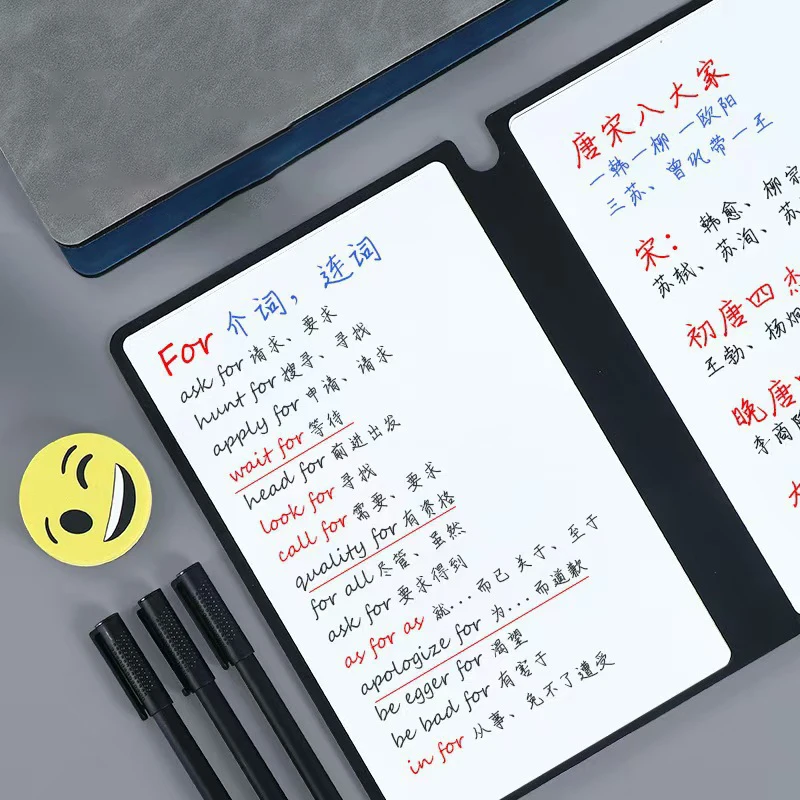 For 介词，连词
ask for 请求、要求
hunt for 搜寻、寻找
apply for 申请、请求
wait for 等待
head for 前进出发
look for 寻找
call for 需要、要求
quality for 有资格
for all 尽管、虽然
ask for 要求得到
as for as 就...而已 关于、至于
apologize for 为...而道歉
be egger for 渴望
be bad for 有害于
in for 从事、免不了遭受
唐宋八大家
一韩一柳一欧阳
三苏、曾巩带一王
宋： 韩愈、柳宗
苏轼、苏洵、苏
初唐四杰
王勃、杨炯
晚唐
李商隐